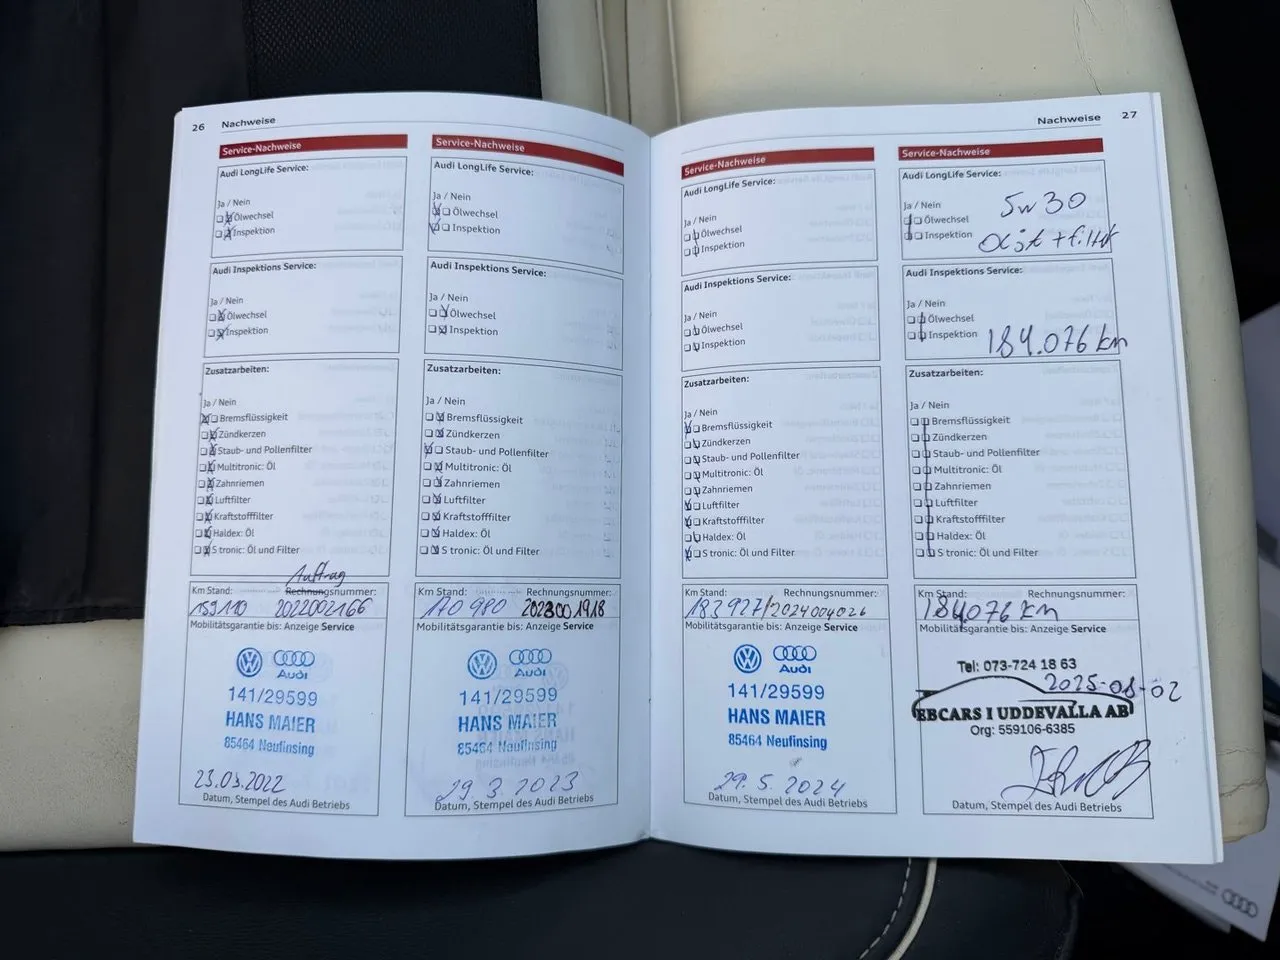 26 Nachweise
Service-Nachweise
Audi LongLife Service:
Ja / Nein
Ölwechsel
Inspektion
Audi Inspektions Service:
Ja / Nein
Ölwechsel
Inspektion
Zusatzarbeiten:
Ja / Nein
Bremsflüssigkeit
Zündkerzen
Staub- und Pollenfilter
Multitronic: Öl
Zahnriemen
Luftfilter
Kraftstofffilter
Haldex: Öl
S tronic: Öl und Filter
Auftrag
Km Stand: Rechnungsnummer:
159110 2022002166
Mobilitätsgarantie bis: Anzeige Service
Audi
141/29599
HANS MAIER
85464 Neufinsing
23.03.2022
Datum, Stempel des Audi Betriebs
Service-Nachweise
Audi LongLife Service:
Ja / Nein
Ölwechsel
Inspektion
Audi Inspektions Service:
Ja / Nein
Ölwechsel
Inspektion
Zusatzarbeiten:
Ja / Nein
Bremsflüssigkeit
Zündkerzen
Staub- und Pollenfilter
Multitronic: Öl
Zahnriemen
Luftfilter
Kraftstofffilter
Haldex: Öl
S tronic: Öl und Filter
Km Stand: Rechnungsnummer:
170 980 2023001918
Mobilitätsgarantie bis: Anzeige Service
Audi
141/29599
HANS MAIER
85464 Neufinsing
29.3.2023
Datum, Stempel des Audi Betriebs
Nachweise 27
Service-Nachweise
Audi LongLife Service:
Ja / Nein
Ölwechsel
Inspektion
Audi Inspektions Service:
Ja / Nein
Ölwechsel
Inspektion
Zusatzarbeiten:
Ja / Nein
Bremsflüssigkeit
Zündkerzen
Staub- und Pollenfilter
Multitronic: Öl
Zahnriemen
Luftfilter
Kraftstofffilter
Haldex: Öl
S tronic: Öl und Filter
Km Stand: Rechnungsnummer:
183 927/2024004026
Mobilitätsgarantie bis: Anzeige Service
Audi
141/29599
HANS MAIER
85464 Neufinsing
29.5.2024
Datum, Stempel des Audi Betriebs
Service-Nachweise
Audi LongLife Service:
Ja / Nein
5w30
Ölwechsel
Inspektion
+filter
Audi Inspektions Service:
Ja / Nein
Ölwechsel
Inspektion
184.076 km
Zusatzarbeiten:
Ja / Nein
Bremsflüssigkeit
Zündkerzen
Staub- und Pollenfilter
Multitronic: Öl
Zahnriemen
Luftfilter
Kraftstofffilter
Haldex: Öl
S tronic: Öl und Filter
Km Stand: Rechnungsnummer:
184076 km
Mobilitätsgarantie bis: Anzeige Service
Tel: 073-724 18 63
2025-08-02
EBCARS I UDDEVALLA AB
Org: 559106-6385
Datum, Stempel des Audi Betriebs